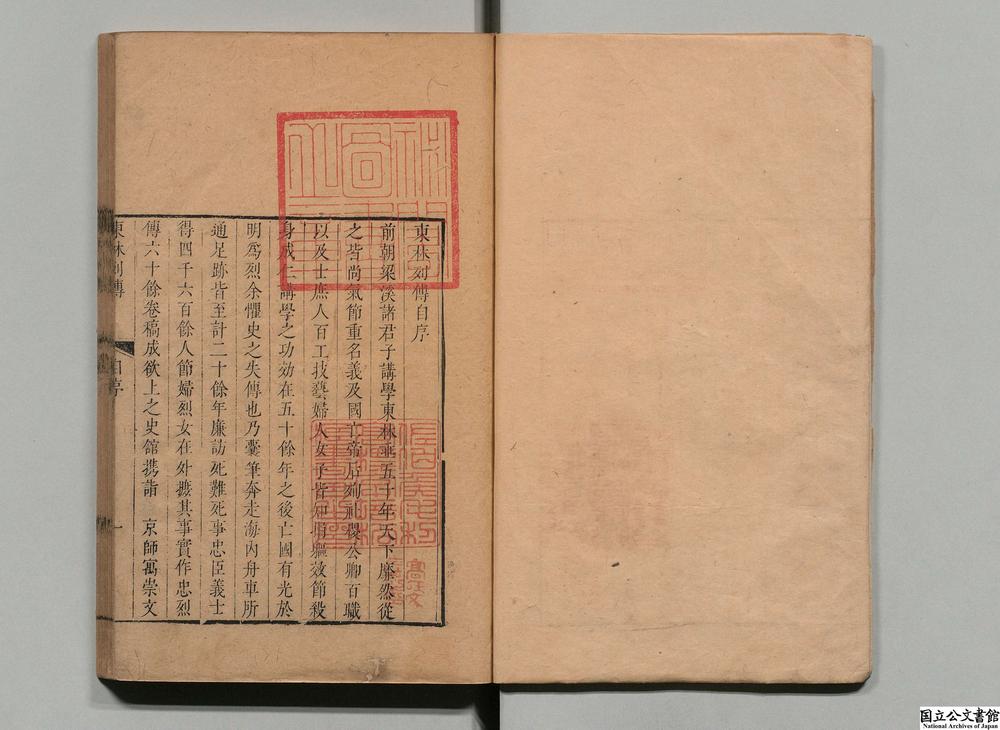 東林列傳自序
前朝梁溪諸君子講學東林垂五十年天下靡然從
之皆尚氣節重名義及國亡帝后殉社稷公卿百職
以及士庶人百工技藝婦人女子皆知捐軀效節殺
身成仁講學之功効在五十餘年之後亡國有光於
明爲烈余懼史之失傳也乃囊筆奔走海內舟車所
通足跡皆至計二十餘年廉訪死難死事忠臣義士
得四千六百餘人節婦烈女在外摭其事實作忠烈
傳六十餘卷稿成欲上之史館攜詣 京師寓崇文
東林列傳 自序 一
国立公文書館
National Archives of Japan